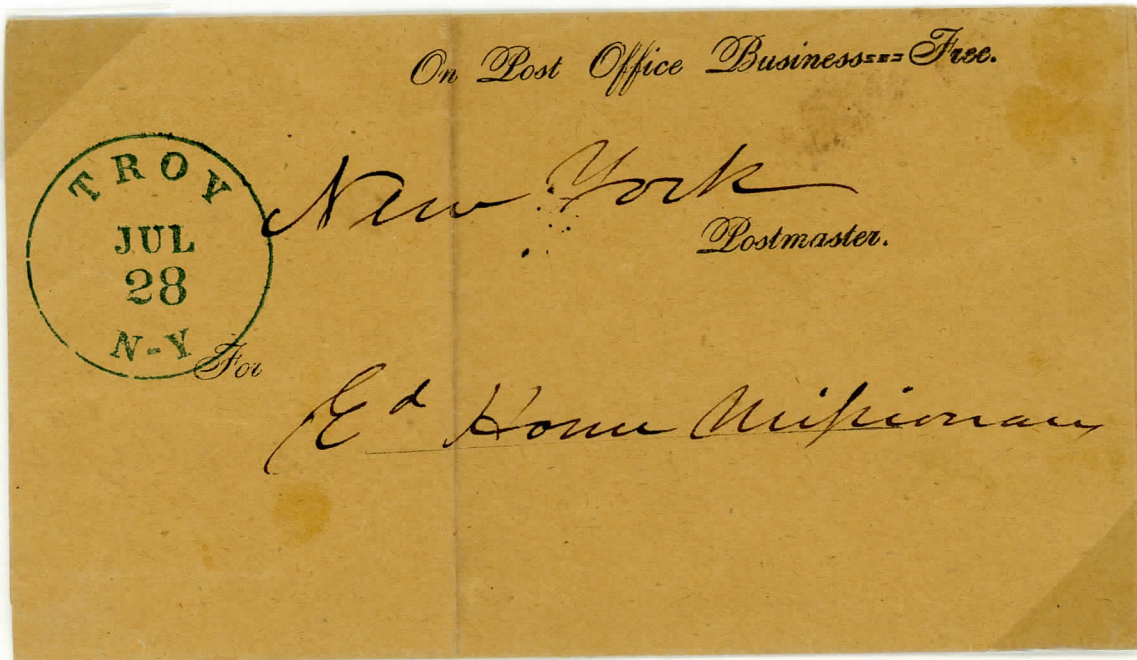 On Post Office Business===Free.
TROY
JUL
28
N-Y
New York
Postmaster.
For
Ed Home Missionary